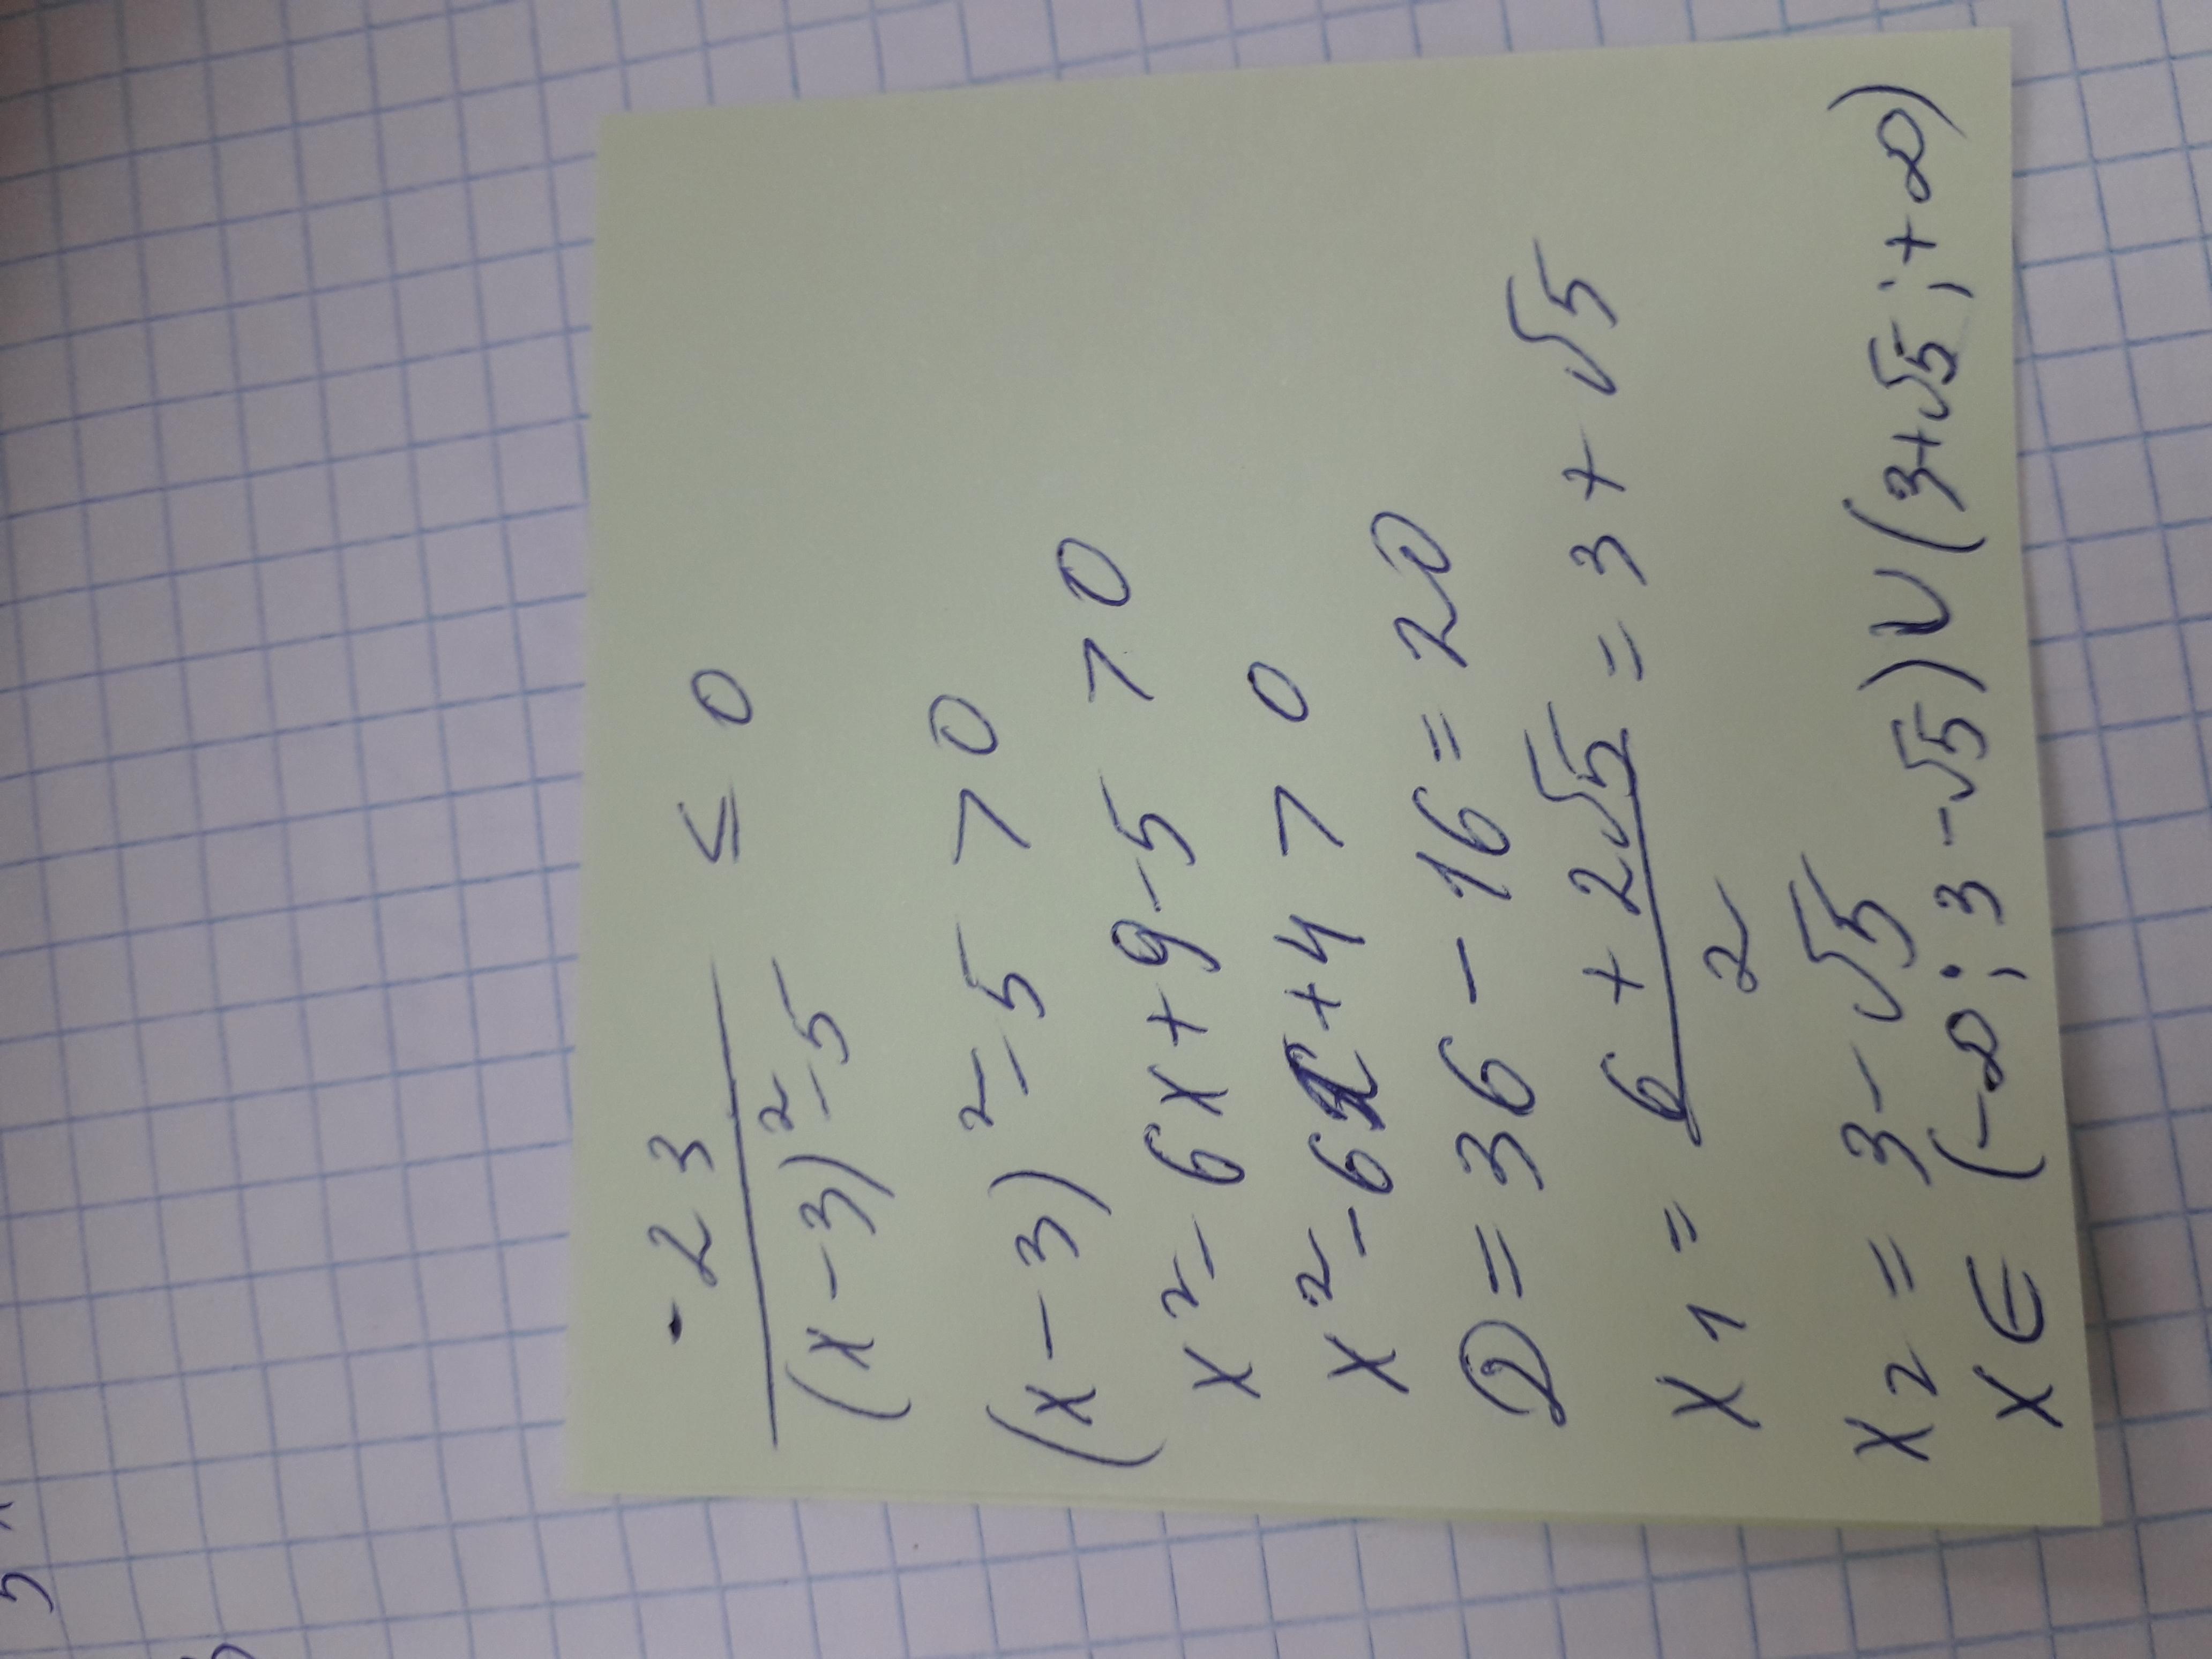 -23
(x-3)²-5 ≤ 0
(x-3)²-5>0
x²-6x+9-5>0
x²-6x+4>0
D=36-16=20
x1 = 6+2√5 / 2 = 3+√5
x2 = 3-√5
x∈(-∞; 3-√5)∪(3+√5; +∞)